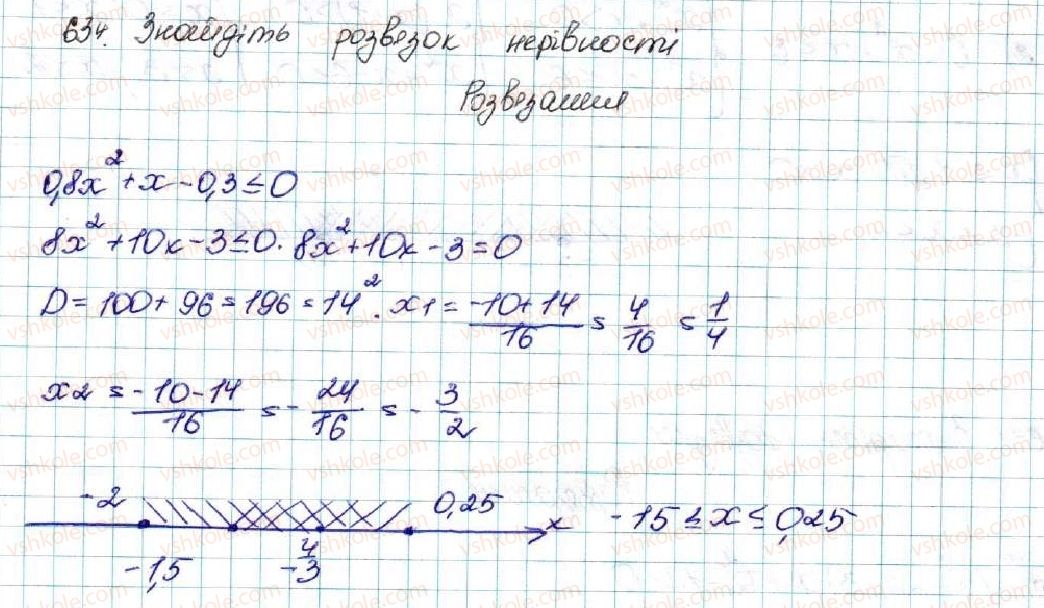 634. Знайдіть розвязок нерівності
Розвязання
0,8x² + x - 0,3 ≤ 0
8x² + 10x - 3 ≤ 0. 8x² + 10x - 3 = 0
D = 100 + 96 = 196 = 14². x1 = (-10+14)/16 = 4/16 = 1/4
x2 = (-10-14)/16 = -24/16 = -3/2
-2 0,25 x -15 ≤ x ≤ 0,25
-1,5 4/-3